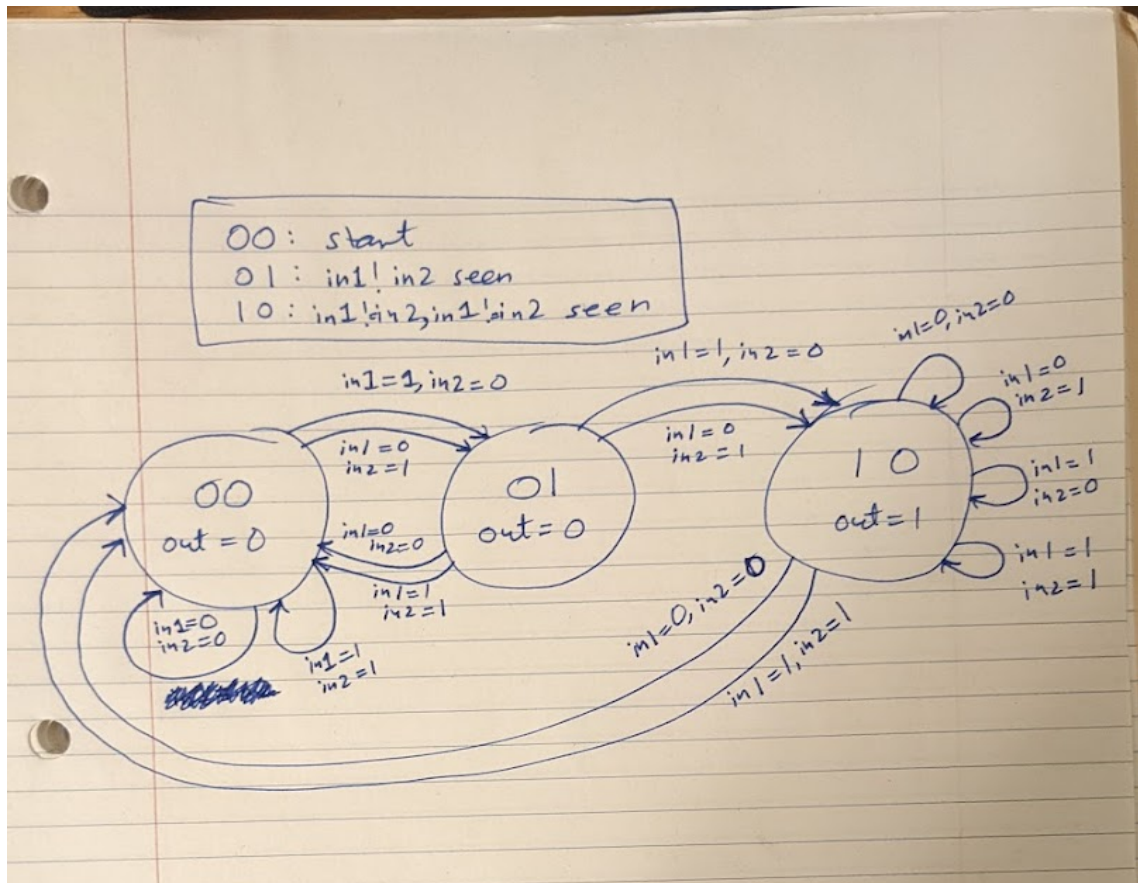 00: start
01: in1! in2 seen
10: in1!=in2, in1!=in2 seen
in1=1, in2=0
in1=1, in2=0
in1=0, in2=0
in1=0
in2=1
in1=0
in2=1
in1=0
in2=1
00
out = 0
01
out = 0
10
out = 1
in1=1
in2=0
in1=0
in2=0
in1=1
in2=1
in1=1
in2=1
in1=0
in2=0
in1=1
in2=1
in1=0, in2=0
in1=1, in2=1